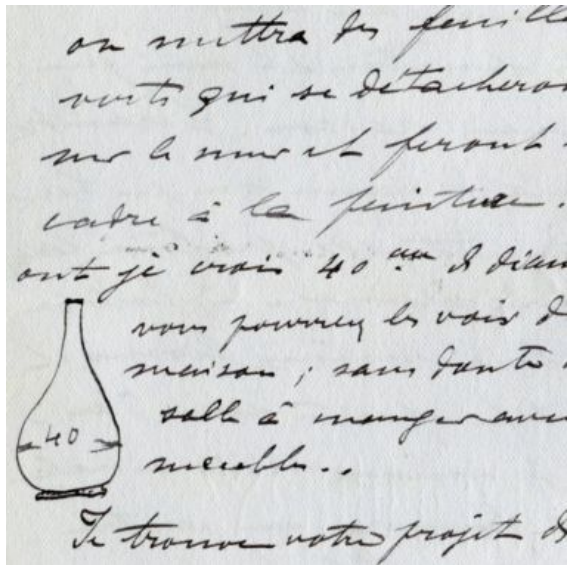 on mettra des feuille
verts qui se détacheron
sur le mur et feront
cadre à la peinture.
ont je crois 40 cm de diam
vous pourrez les voir d
maison ; sans doute
salle à manger avec
40
meubles..
Je trouve votre projet de